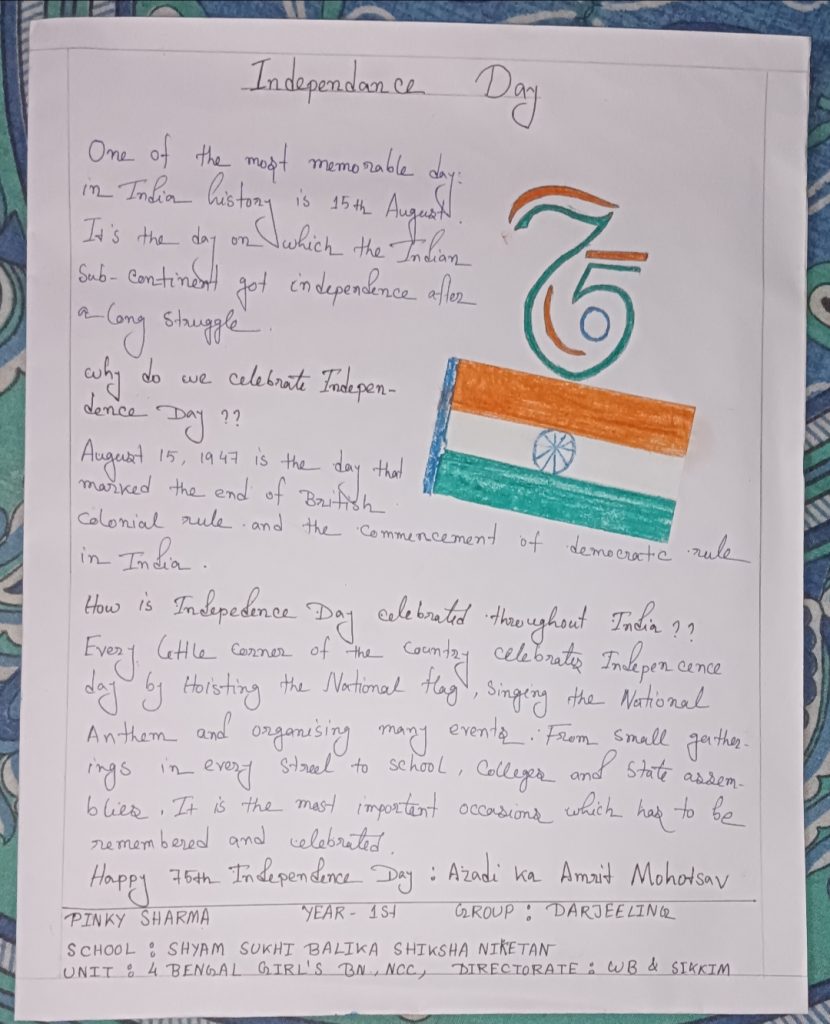 Independance Day
One of the most memorable day:
in India history is 15th August.
It's the day on which the Indian
Sub-Continent got independence after
a long struggle.
75
why do we celebrate Indepen-
dence Day ??
August 15, 1947 is the day that
marked the end of British
Colonial rule. and the Commencement of democratc rule
in India.
How is Indepedence Day celebrated throughout India ??
Every little corner of the Country celebrates Indepencence
day by Hoisting the National flag, Singing the National
Anthem and organising many events. From small gather-
ings in every street to school, Colleges and State assem-
blies. It is the most important occasions which has to be
remembered and celebrated.
Happy 75th Independence Day : Azadi ka Amrit Mohotsav
PINKY SHARMA YEAR - 1St GROUP : DARJEELING
SCHOOL : SHYAM SUKHI BALIKA SHIKSHA NIKETAN
UNIT : 4 BENGAL GIRL'S BN, NCC, DIRECTORATE : WB & SIKKIM